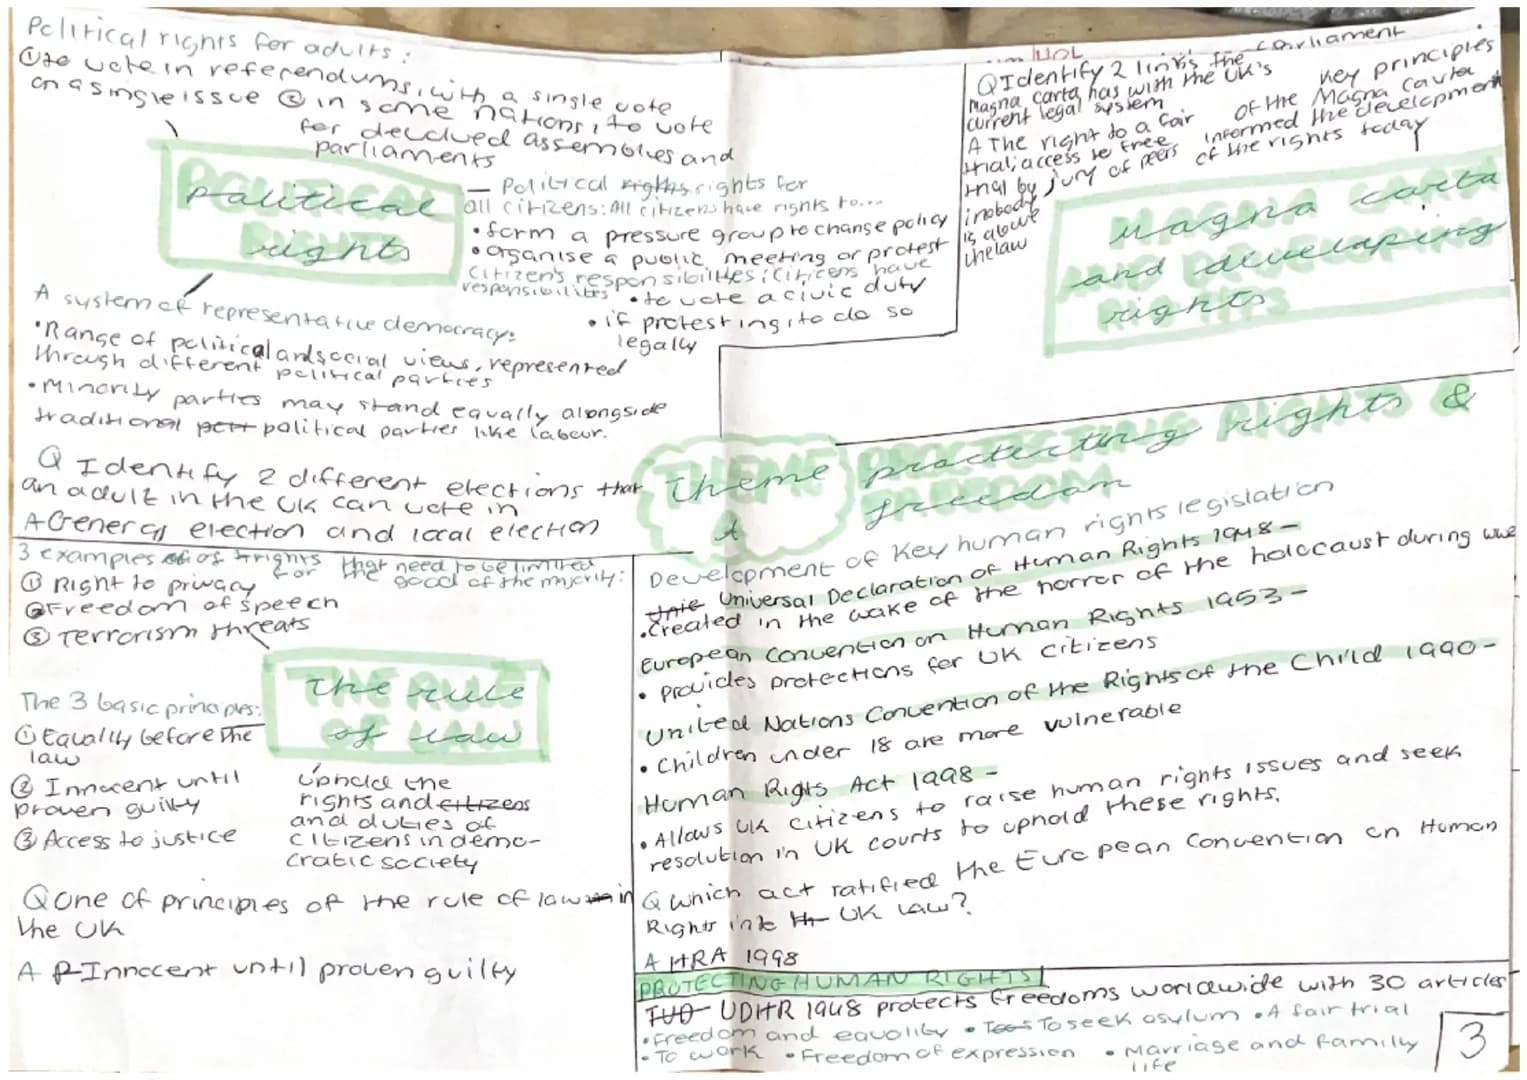 Political rights for adults:
① to vote in referendums, with a single vote
on a single issue ② in some nations, to vote
for devolved assemblies and
parliaments
POLITICAL RIGHTS
Political
rights
— Political rights rights for
all citizens: All citizens have rights to...
• form a pressure group to change policy
• organise a public meeting or protest
Citizen's responsibilities: Citizens have
responsibilites • to vote a civic duty
• if protesting, to do so
legally
A system of representative democracy:
• Range of political and social views, represented
through different political parties
• Minority parties may stand equally alongside
traditional political parties like labour.
Q Identify 2 different elections that
an adult in the UK can vote in
A General election and local election
Q Identify 2 links the
Magna carta has with the UK's
current legal system
A The right to a fair
trial; access to free
trial by jury of peers
; nobody
is above
the law
parliament
Key principles
of the Magna Carta
informed the development
of the rights today
MAGNA CARTA AND DEVELOPING RIGHTS
Magna carta
and developing
rights
THEME
Theme
A
PROTECTING RIGHTS & FREEDOM
protecting rights &
freedom
Development of key human rights legislation
Universal Declaration of Human Rights 1948 –
• Created in the wake of the horror of the holocaust during ww2
European Convention on Human Rights 1953 –
• Provides protections for UK citizens
United Nations Convention of the Rights of the Child 1990 –
• Children under 18 are more vulnerable
Human Rigts Act 1998 –
• Allows UK citizens to raise human rights issues and seek
resolution in UK courts to uphold these rights.
Q which act ratified the European Convention on Human
Rights into UK law?
A HRA 1998
3 examples of rights that need to be limited
for the good of the majority:
① Right to privacy
② Freedom of speech
③ Terrorism threats
THE RULE OF LAW
The rule
of law
The 3 basic principles:
① Equality before the
law
② Innocent until
proven guilty
③ Access to justice
Uphold the
rights and citizens
and duties of
citizens in demo-
cratic society
Q One of principles of the rule of law in
the UK
A Innocent until proven guilty
PROTECTING HUMAN RIGHTS
UDHR 1948 protects freedoms worldwide with 30 articles
• Freedom and equality • To seek asylum • A fair trial
• To work • Freedom of expression • Marriage and family
life
3